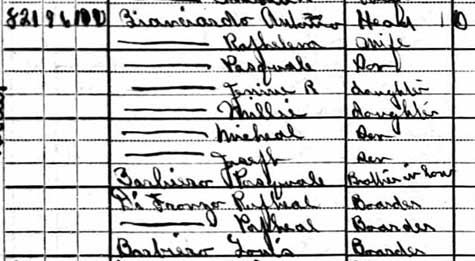 821 96 100 Bianciardo Head 1 O
Raphelena Wife
Pasquale Son
Jennie R daughter
Millie daughter
Micheal Son
Joseph Son
Barbiero Pasquale Brother in law
Di Fronzo Rapheal Boarder
Rapheal Boarder
Barbiero Louis Boarder